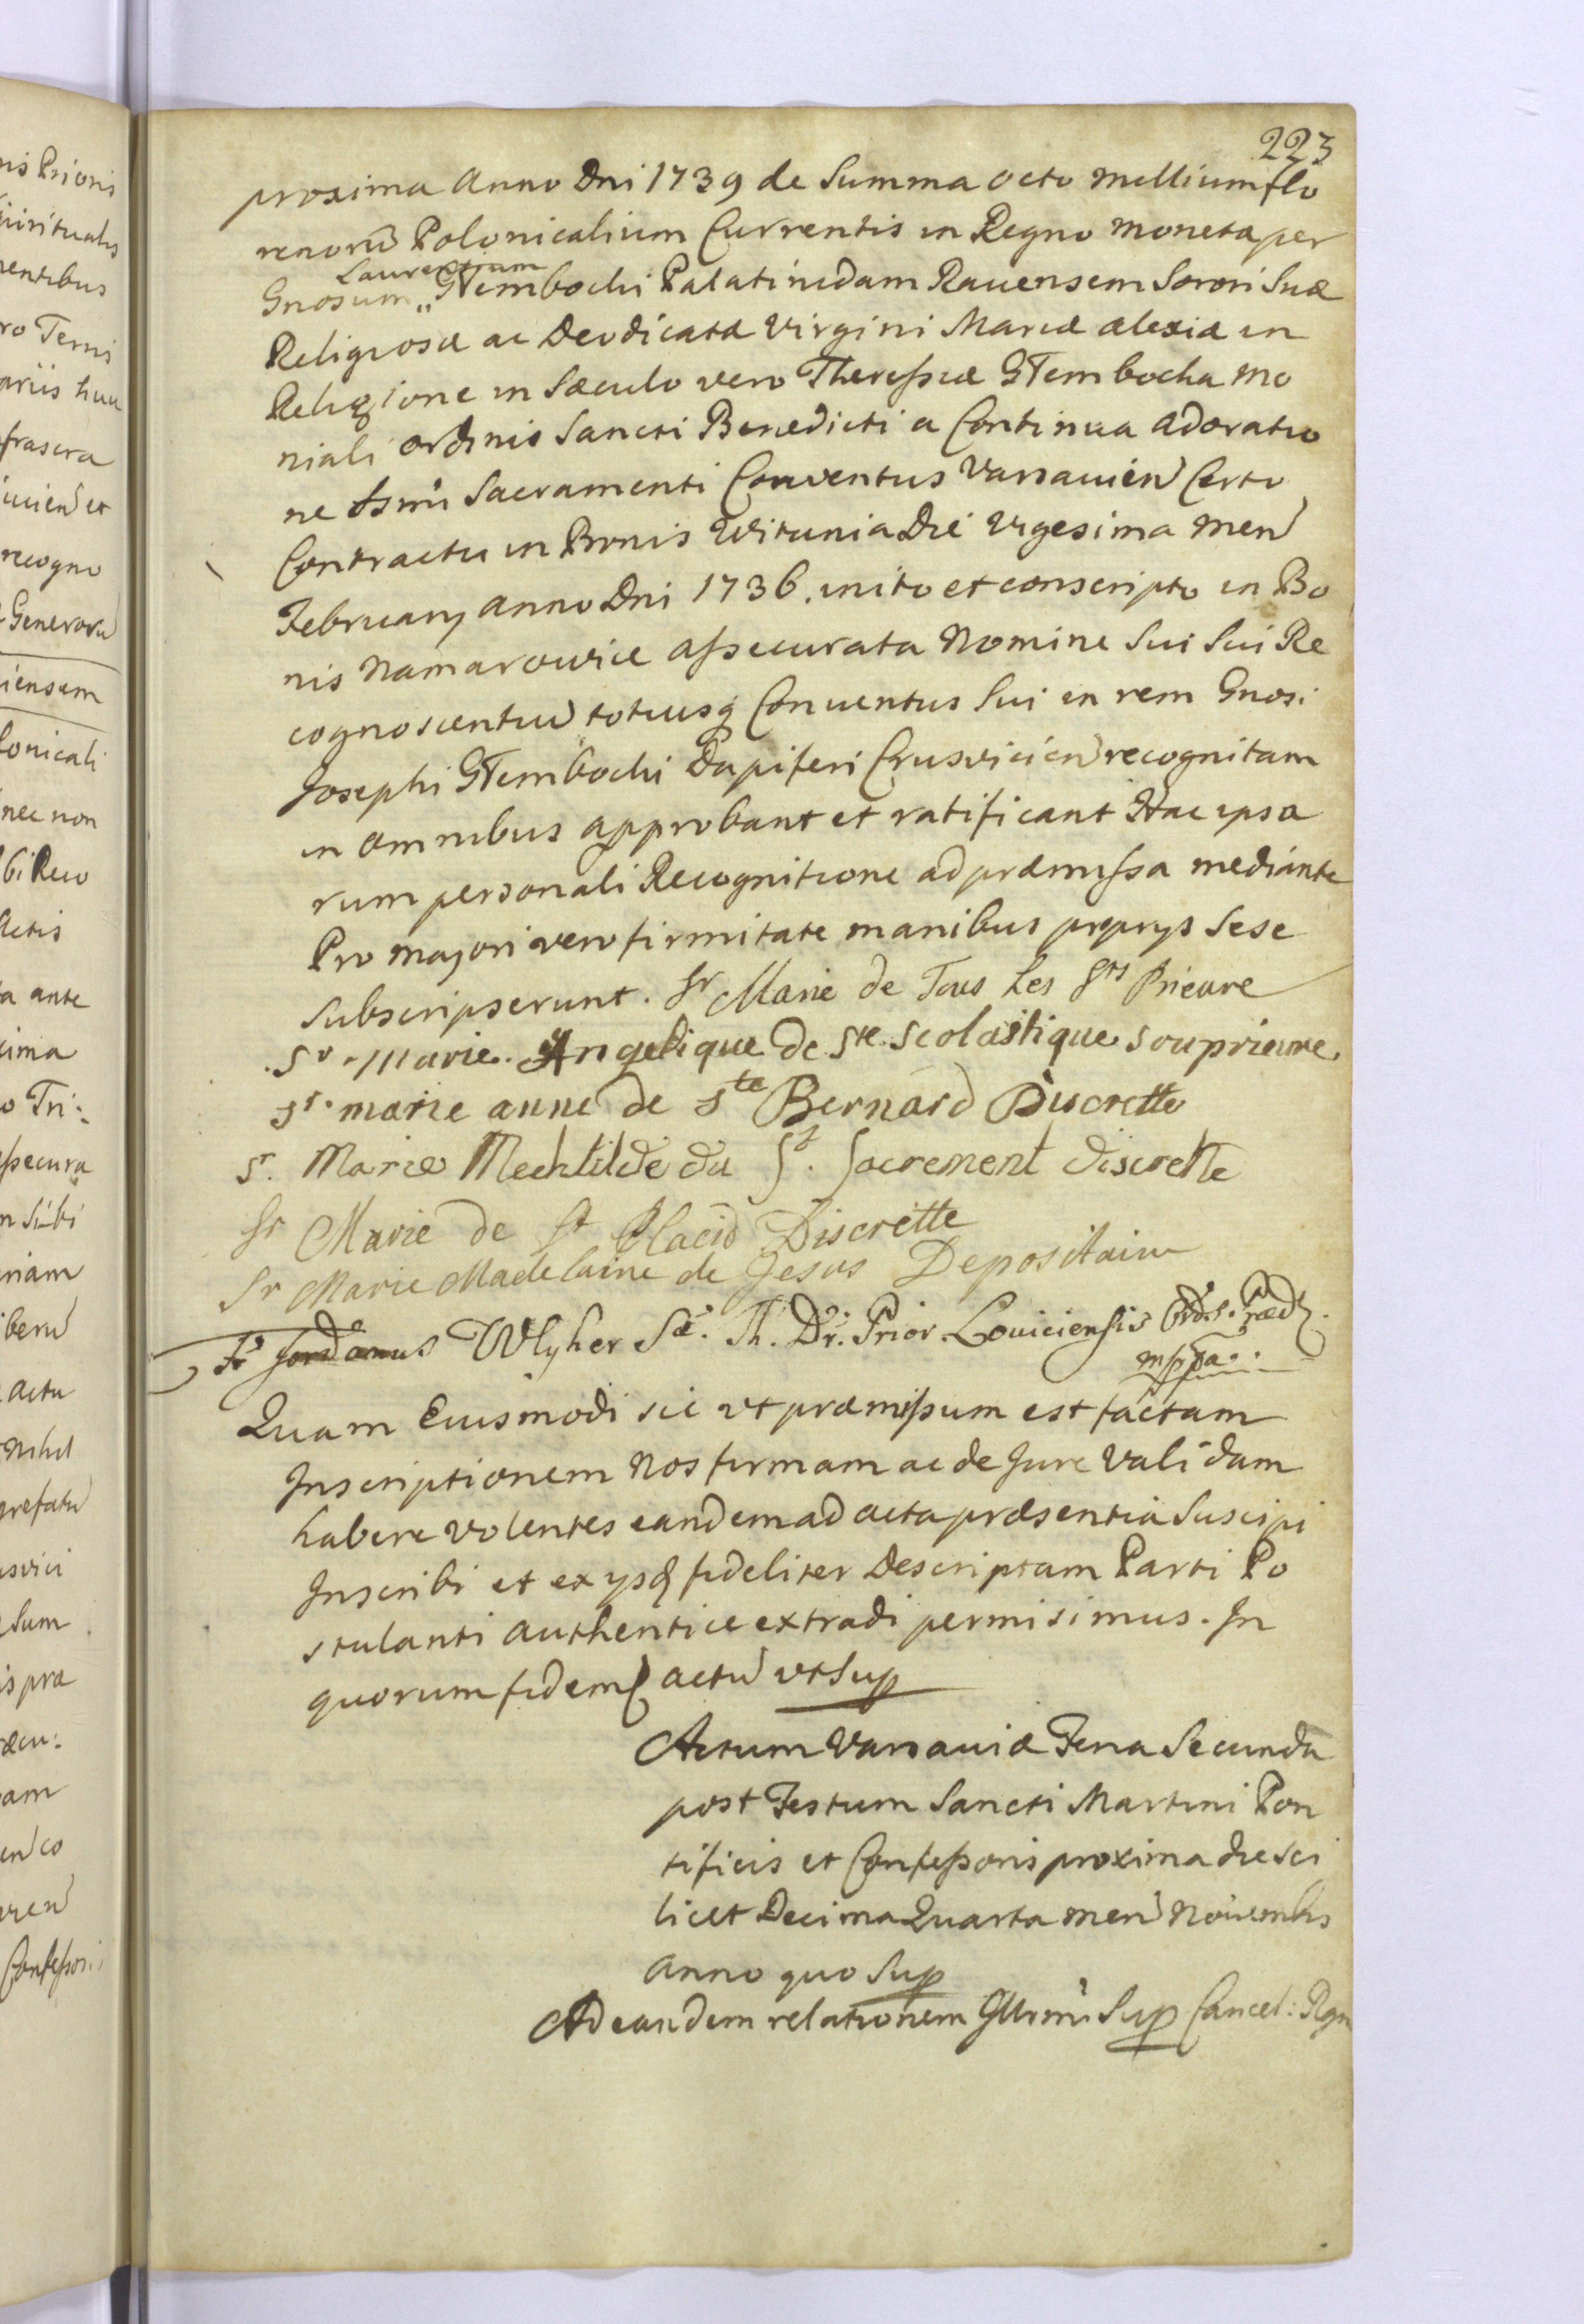 223
proxima Anno Dni 1739 de Summa octo millium flo
renorũ Polonicalium Currentis in Regno moneta per
Laurentium
Gnosum „ Glembochi Palatinidam Rauensem Sorori Suæ
Religiosæ ac Deodicatæ Virgini Mariæ Alexiæ in
Religione in Sæculo vero Theressiæ Glembocka Mo
niali Ordinis Sancti Benedicti a Continua Adoratio
ne SSmi Sacramenti Conventus Varsavien Certo
Contractu in Bonis Witunia Die Vigesima Men
February Anno Dni 1736. inito et conscripto in Bo
nis Namarowice assecurata Nomine Sui Sui Re
cognoscentiũ totiusq Conventus Sui in rem Gnosi
Josephi Glembochi Dapiferi Crusvicien recognitam
in omnibus approbant et ratificant Hac ipsa
rum personali Recognitione ad præmissa mediante
Pro majori vero firmitate manibus proprys Sese
subscripserunt. Sr Marie de Tous Les Sts Prieure
Sr. Marie. Angelique de Ste. Scolastique souprieure
sr. marie anne de ste Bernard Discrette
sr. Marie Mechtilde du St. Sacrement discrette
Sr Marie de St Placid Discrette
Sr Marie Madelaine de Jesus Depositaire
Fr Jordanus Wlyher Sæ. Th. Dr. Prior Loviciensis Ord. Præd.
mppa.
Quam Eiusmodi sic ut præmissum est factam
Inscriptionem Nos firmam ac de Jure Validam
habere volentes eandem ad acta præsentia Suscipi
Inscribi et ex ysd fideliter Descriptam Parti Po
stulanti Authentice extradi permisimus. In
quorum fidem actũ ut Sup
Actum Varsaviæ Feria Secunda
post Festum Sancti Martini Pon
tificis et Confessoris proxima die sci
licet Decima Quarta Men Novembs
Anno quo Sup
Ad eandem relationem Gllrmi Sup Cancel: Rgn
nis Prioris
entibus
ro Terris
recogno
iensem
lonicali
nec non
Actis
ta ante
xima
o Tri:
n Sibi
actu
Nihil
Sum
is præ
Confessori